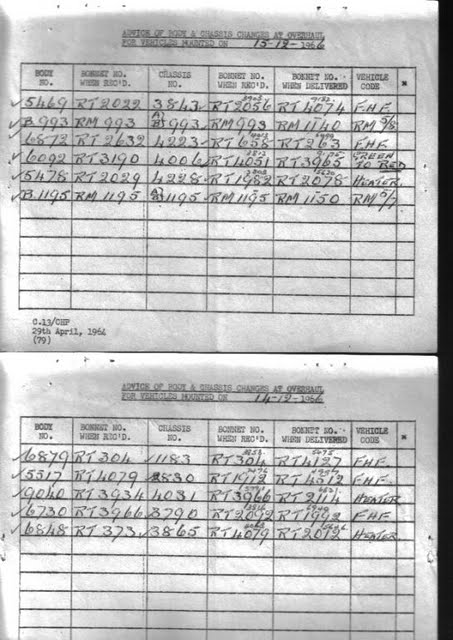 ADVICE OF BODY & CHASSIS CHANGES AT OVERHAUL
FOR VEHICLES MOUNTED ON 15-12-1966
BODY NO. BONNET NO. WHEN REC'D. CHASSIS NO. BONNET NO. WHEN REC'D. BONNET NO. WHEN DELIVERED VEHICLE CODE *
✓5469 RT2022 3843 ✓RT2056 RT4074 F.H.F.
✓B.993 RM 993 993 ✓RM993 RM1140 RM 5/8
6872 RT2632 4223 RT658 RT263 F.H.F.
✓6092 RT3190 4006 RT4051 RT3965 GREEN TO RED
✓5478 RT2029 4228 RT1982 RT2078 HEATER
✓B.1195 RM 1195 1195 ✓RM1195 RM 1150 RM 5/7
C.13/CHP
29th April, 1964
(79)
ADVICE OF BODY & CHASSIS CHANGES AT OVERHAUL
FOR VEHICLES MOUNTED ON 14-12-1966
BODY NO. BONNET NO. WHEN REC'D. CHASSIS NO. BONNET NO. WHEN REC'D. BONNET NO. WHEN DELIVERED VEHICLE CODE *
✓6879 RT304 ✓1183 RT304 RT4127 F.H.F.
✓5517 RT4079 3830 RT1912 RT4512 F.H.F.
✓9040 RT3934 4031 RT3966 RT2114 HEATER
✓6730 RT3966 3790 RT2092 RT1992 F.H.F.
✓6848 RT373 3865 RT4079 RT2012 HEATER